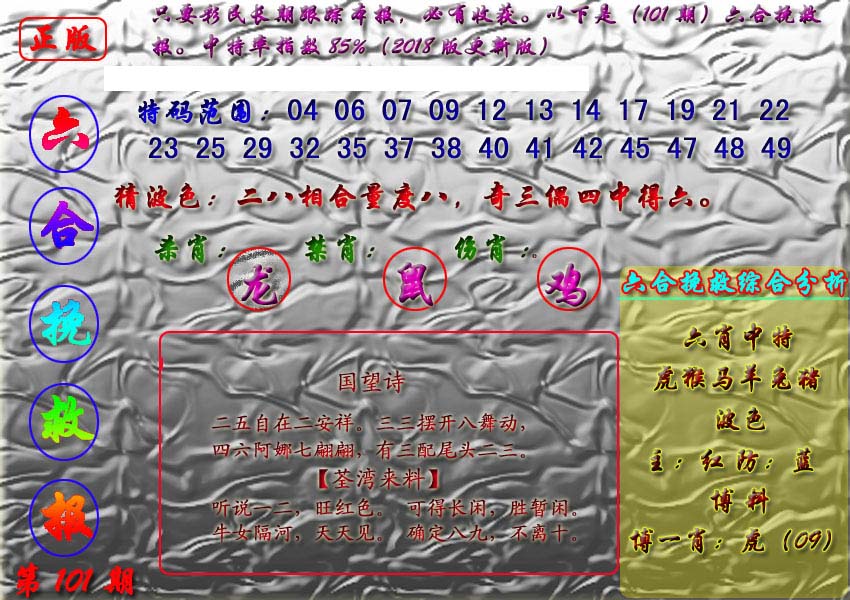 正版
只要彩民长期跟踪本报，必有收获。以下是（101期）六合挽救
报。中特率指数85%（2018版更新版）
特码范围：04 06 07 09 12 13 14 17 19 21 22
23 25 29 32 35 37 38 40 41 42 45 47 48 49
猜波色：二八相合量度八，奇三偶四中得六。
杀肖：龙 禁肖：鼠 伤肖：。鸡
六
合
挽
救
报
第101期
国望诗
二五自在二安祥。三三摆开八舞动，
四六阿娜七翩翩，有三配尾头二三。
【荃湾来料】
听说一二，旺红色。 可得长闲，胜暂闲。
牛女隔河，天天见。 确定八九，不离十。
六合挽救综合分析
六肖中特
虎猴马羊兔猪
波色
主：红防：蓝
博料
博一肖：虎（09）